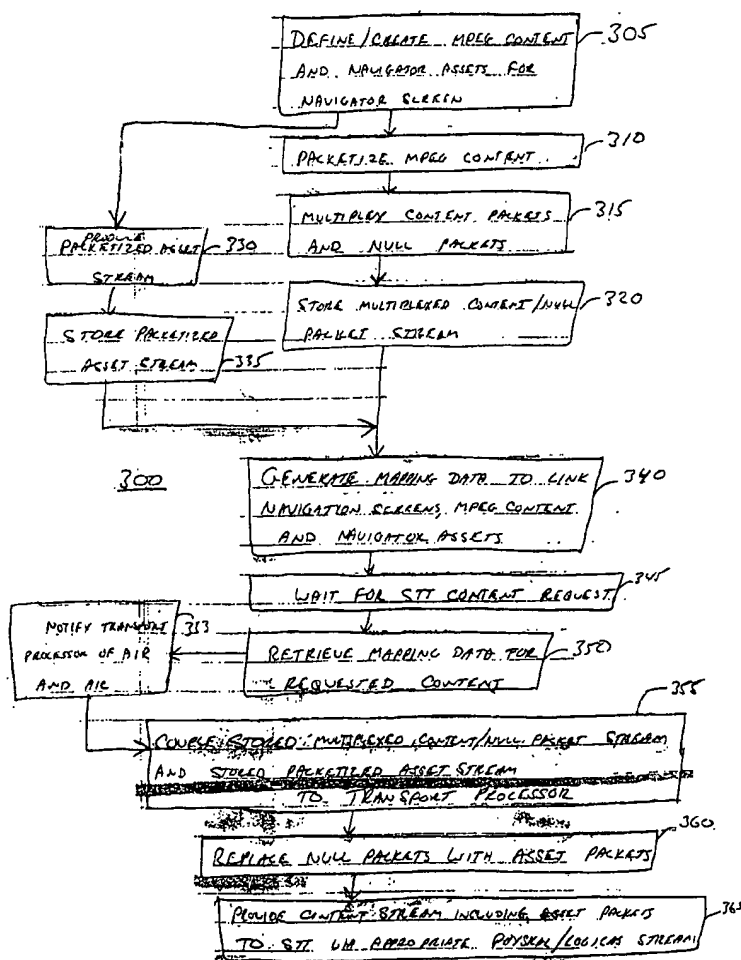 DEFINE/CREATE MPEG CONTENT
305
AND NAVIGATOR ASSETS FOR
NAVIGATOR SCREEN
PACKETIZE MPEG CONTENT
310
MULTIPLEX CONTENT PACKETS
315
AND NULL PACKETS
PRODUCE
PACKETIZED ASSET
330
STREAM
STORE MULTIPLEXED CONTENT/NULL
320
PACKET STREAM
STORE PACKETIZED
ASSET STREAM
335
300
GENERATE MAPPING DATA TO LINK
340
NAVIGATION SCREENS, MPEG CONTENT
AND NAVIGATOR ASSETS
WAIT FOR STT CONTENT REQUEST
345
NOTIFY TRANSPORT
353
PROCESSOR OF AIR
AND AIR
RETRIEVE MAPPING DATA FOR
350
REQUESTED CONTENT
355
COUPLE STORED MULTIPLEXED CONTENT/NULL PACKET STREAM
AND STORED PACKETIZED ASSET STREAM
TO TRANSPORT PROCESSOR
360
REPLACE NULL PACKETS WITH ASSET PACKETS
PROVIDE CONTENT STREAM INCLUDING ASSET PACKETS
365
TO STT VIA APPROPRIATE PHYSICAL/LOGICAL STREAM